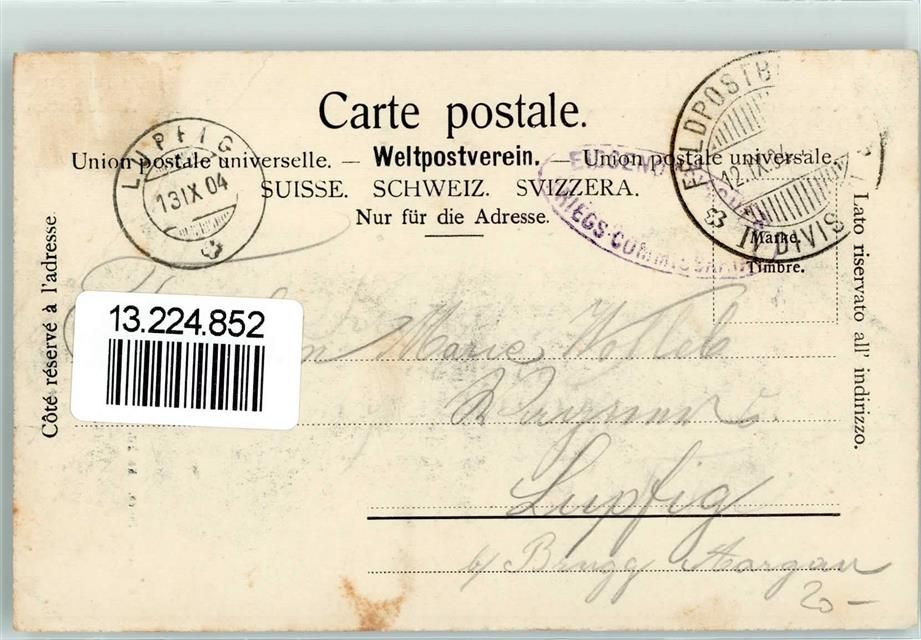 Carte postale.
Union postale universelle. — Weltpostverein. — Union postale universale.
SUISSE. SCHWEIZ. SVIZZERA.
Nur für die Adresse.
LUPFIG
13 IX 04
FELDPOSTB
12.IX.04
IV DIVIS
KRIEGS-COMMISSARIAT
Marke.
Timbre.
Côté réservé à l'adresse.
Lato riservato all' indirizzo.
13.224.852
Marie
Wagner
Lupfig
b/ Brugg Aargau
20 –